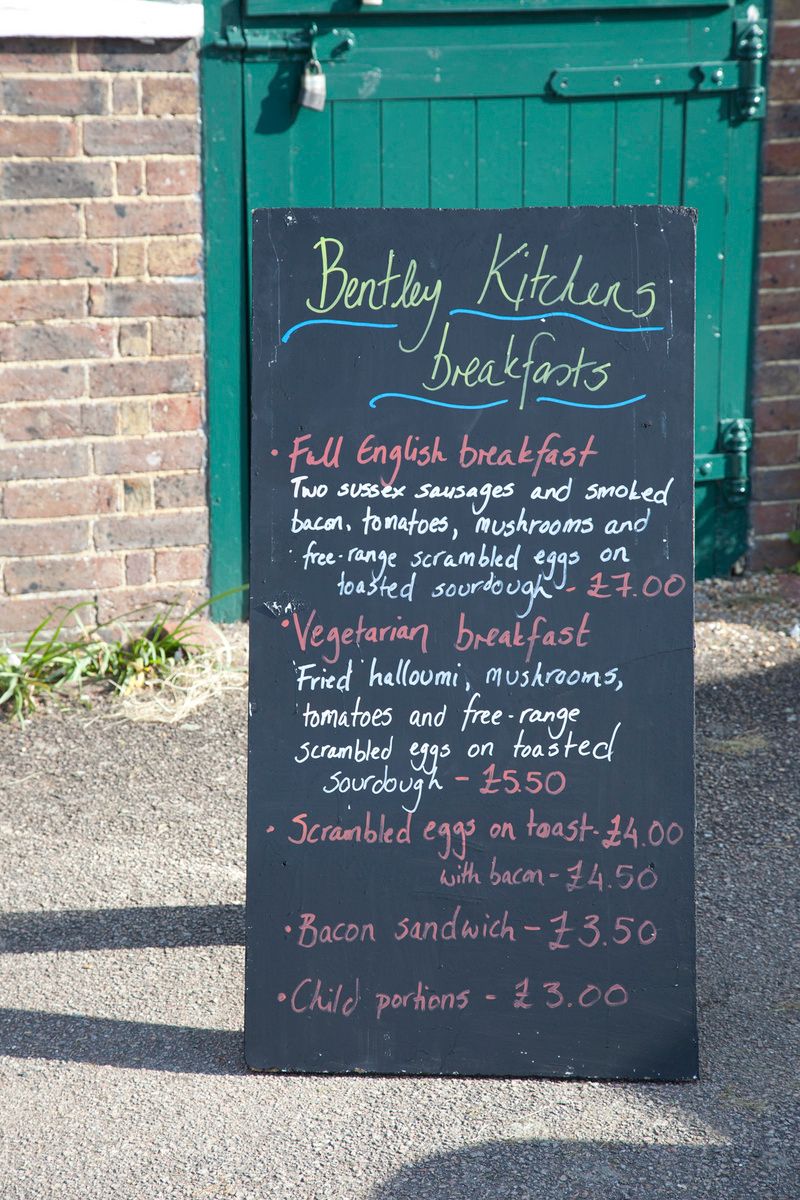 Bentley Kitchens
breakfasts
• Full English breakfast
Two sussex sausages and smoked
bacon, tomatoes, mushrooms and
free-range scrambled eggs on
toasted sourdough - £7.00
• Vegetarian breakfast
Fried halloumi, mushrooms,
tomatoes and free-range
scrambled eggs on toasted
sourdough - £5.50
• Scrambled eggs on toast - £4.00
with bacon - £4.50
• Bacon sandwich - £3.50
• Child portions - £3.00